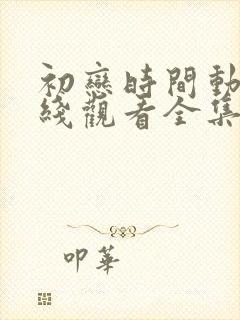 初戀時間動
綫觀看全集
叩華